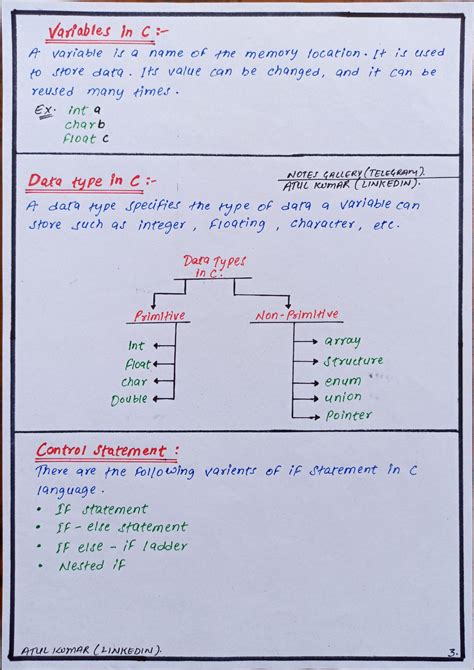 Variables in C :-
A variable is a name of the memory location. It is used
to store data. Its value can be changed, and it can be
reused many times.
Ex. int a
char b
float c
NOTES GALLERY (TELEGRAM).
Data type in C :-
ATUL KUMAR (LINKEDIN).
A data type specifies the type of data a variable can
store such as integer, floating, character, etc.
Data Types
in C.
Primitive
Non-Primitive
Int
Float
char
Double
array
Structure
enum
union
Pointer
Control Statement :
There are the following varients of if statement in C
language.
• If statement
• If - else statement
• If else - if ladder
• Nested if
ATUL KUMAR (LINKEDIN).
3.